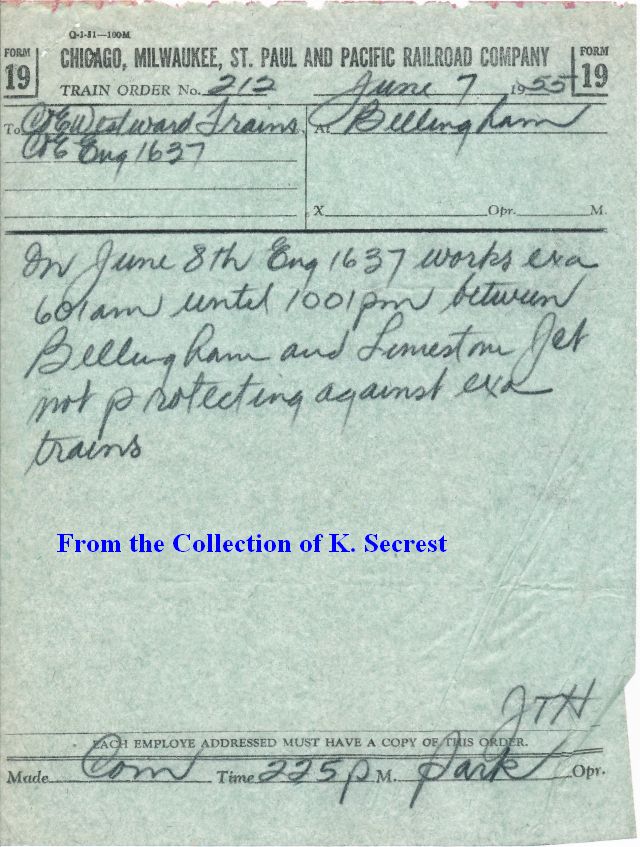 Q-1-51—100M
FORM 19
CHICAGO, MILWAUKEE, ST. PAUL AND PACIFIC RAILROAD COMPANY
FORM 19
TRAIN ORDER No. 212 June 7 1955
To C&E Westward Trains At Bellingham
C&E Eng 1637
X Opr. M.
On June 8th Eng 1637 works exa
601am until 1001pm between
Bellingham and Limestone Jct
not protecting against exa
trains
From the Collection of K. Secrest
JTH
EACH EMPLOYE ADDRESSED MUST HAVE A COPY OF THIS ORDER.
Made Com Time 225p M. Park Opr.